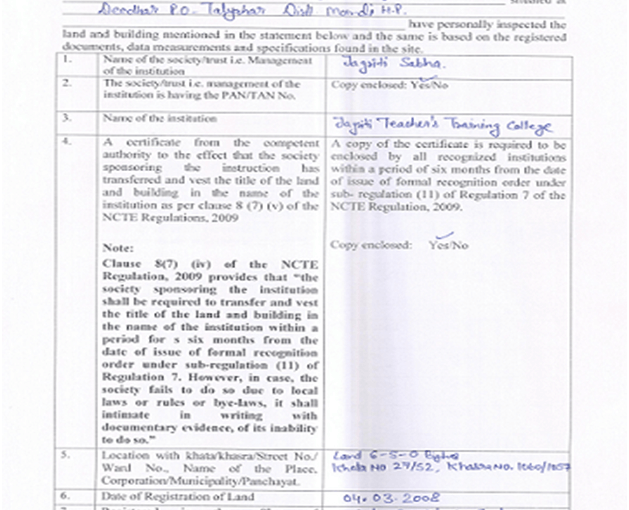 Deodhar P.O. Talyahar Distt Mandi H.P.
have personally inspected the
land and building mentioned in the statement below and the same is based on the registered
documents, data measurements and specifications found in the site.
1. Name of the society/trust i.e. Management
of the institution
Jagriti Sabha.
2. The society/trust i.e. management of the
institution is having the PAN/TAN No.
Copy enclosed: Yes/No
3. Name of the institution
Jagriti Teacher's Training College
4. A certificate from the competent
authority to the effect that the society
sponsoring the instruction has
transferred and vest the title of the land
and building in the name of the
institution as per clause 8 (7) (v) of the
NCTE Regulations, 2009
A copy of the certificate is required to be
enclosed by all recognized institutions
within a period of six months from the date
of issue of formal recognition order under
sub- regulation (11) of Regulation 7 of the
NCTE Regulation, 2009.
Note:
Copy enclosed: Yes/No
Clause 8(7) (iv) of the NCTE
Regulation, 2009 provides that "the
society sponsoring the institution
shall be required to transfer and vest
the title of the land and building in
the name of the institution within a
period for s six months from the
date of issue of formal recognition
order under sub-regulation (11) of
Regulation 7. However, in case, the
society fails to do so due to local
laws or rules or bye-laws, it shall
intimate in writing with
documentary evidence, of its inability
to do so."
5. Location with khata/khasra/Street No./
Ward No., Name of the Place,
Corporation/Municipality/Panchayat.
Land 6-5-0 Bigha
Khata No 27/52, Khasra No. 1060/1057
6. Date of Registration of Land
04.03.2008